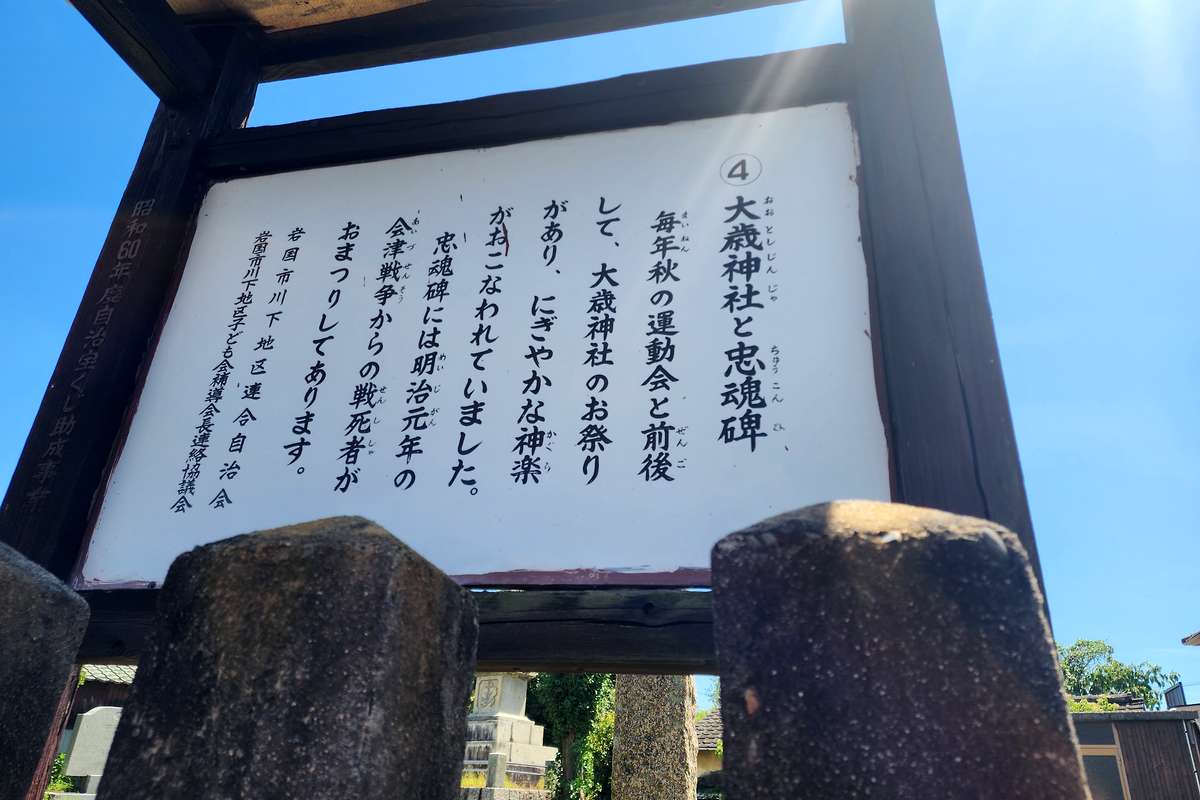 ④ 大歳神社と忠魂碑
毎年秋の運動会と前後
して、大歳神社のお祭り
があり、にぎやかな神楽
がおこなわれていました。
忠魂碑には明治元年の
会津戦争からの戦死者が
おまつりしてあります。
岩国市川下地区連合自治会
岩国市川下地区子ども会補導会長連絡協議会
昭和60年度自治宝くじ助成事業